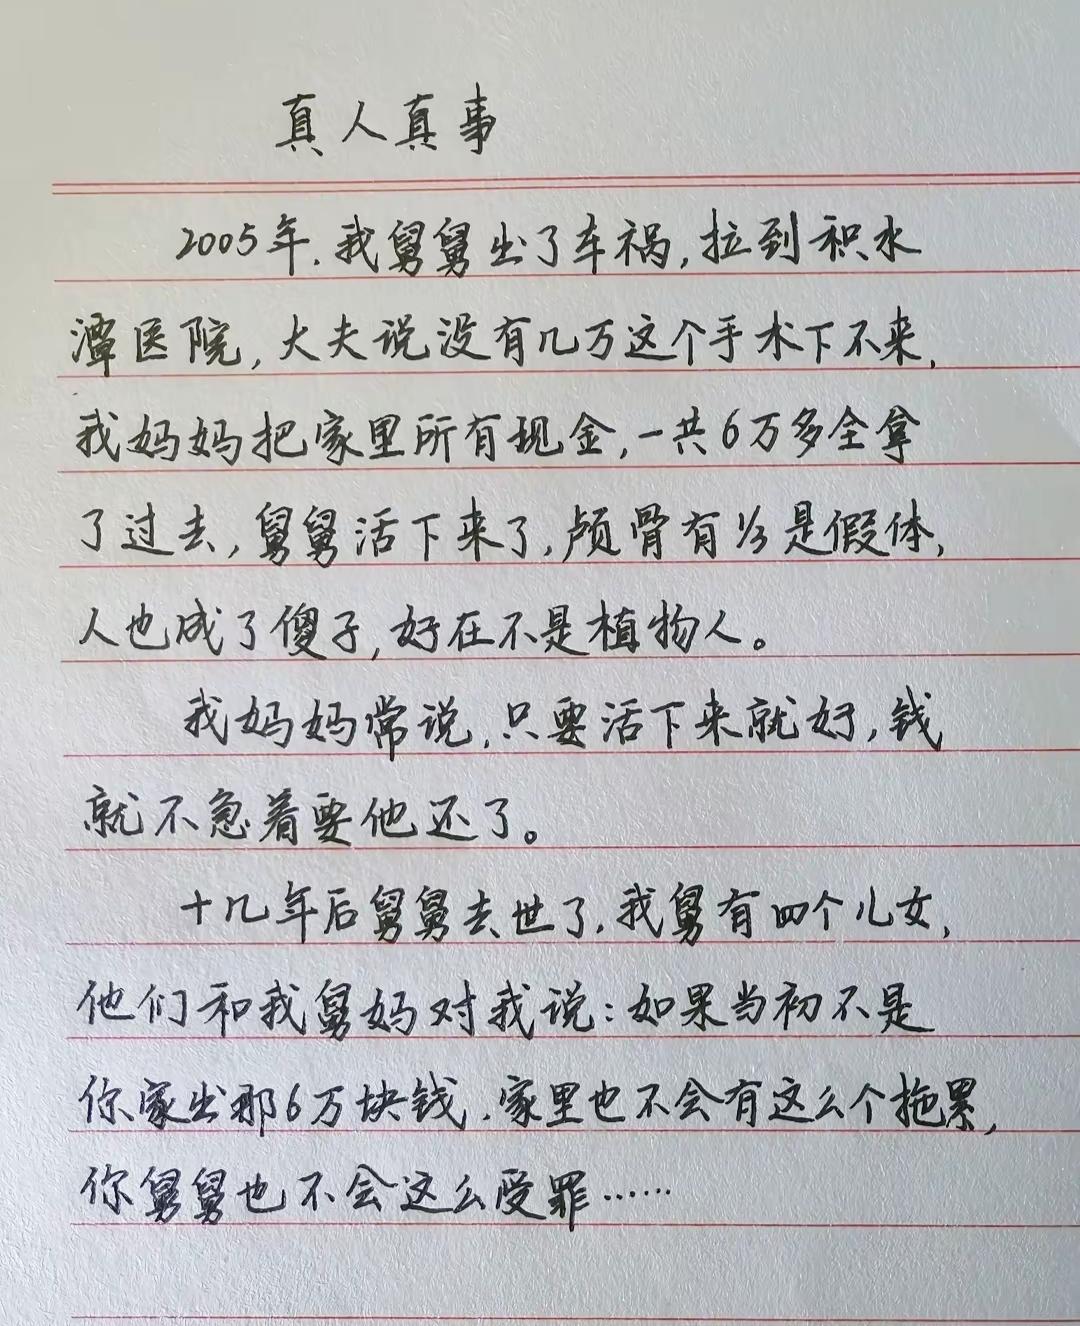 真人真事
2005年,我舅舅出了车祸,拉到积水
潭医院,大夫说没有几万这个手术下不来,
我妈妈把家里所有现金,一共6万多全拿
了过去,舅舅活下来了,颅骨有1/3是假体,
人也成了傻子,好在不是植物人。
我妈妈常说,只要活下来就好,钱
就不急着要他还了。
十几年后舅舅去世了,我舅有四个儿女,
他们和我舅妈对我说:如果当初不是
你家出那6万块钱,家里也不会有这么个拖累,
你舅舅也不会这么受罪……